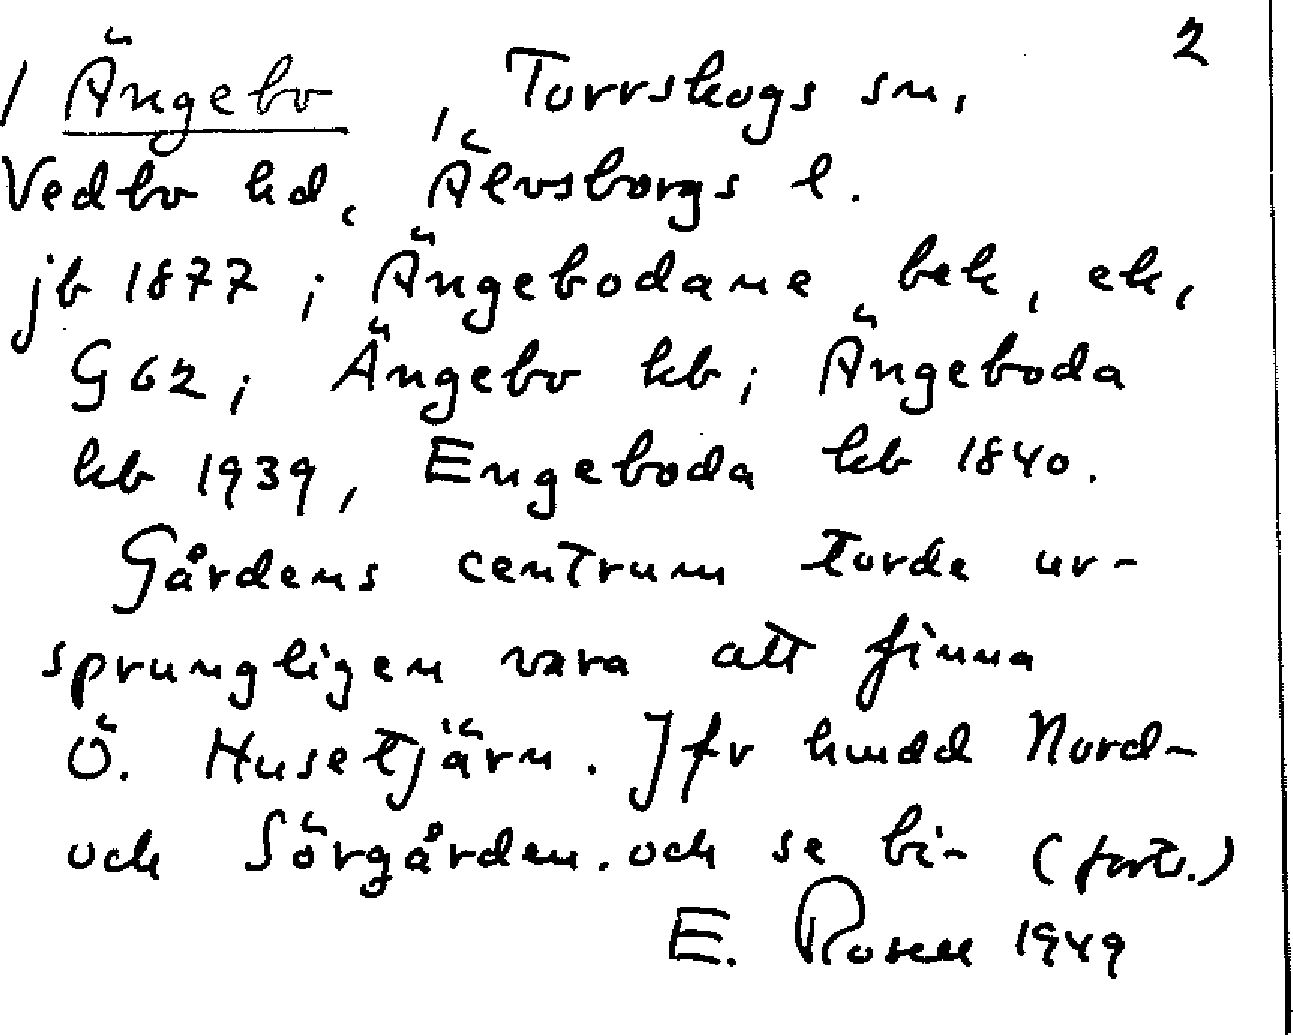 2
/ Ängebo , Torrskogs sn,
Vedbo hd, Älvsborgs l.
jb 1877 ; Ängebodane bek, ek,
G62; Ängebo kb; Ängeboda
kb 1939, Engeboda kb 1840.
Gårdens centrum torde ur-
sprungligen vara att finna
Ö. Husetjärn. Jfr hmdd Nord-
och Sörgården. och se bi- (forts.)
E. Rosell 1949